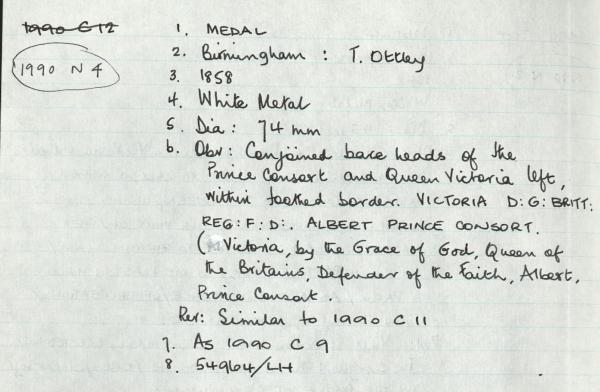 1990 C 12
1990 N 4
1. MEDAL
2. Birmingham : T. Ottley
3. 1858
4. White Metal
5. Dia : 74 mm
6. Obv: Conjoined bare heads of the
Prince Consort and Queen Victoria left,
within toothed border. VICTORIA D:G:BRITT:
REG:F:D:. ALBERT PRINCE CONSORT.
( Victoria, by the Grace of God, Queen of
the Britains, Defender of the Faith, Albert,
Prince Consort.
Rev: Similar to 1990 C 11
7. As 1990 C 9
8. 54964/LH